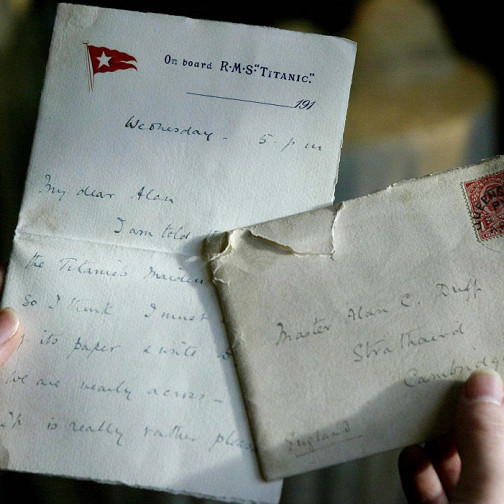 On board R·M·S "TITANIC."
191
Wednesday - 5. p m
My dear Alan
I am told
the Titanic's maiden
So I think I must
its paper & write
we are nearly across -
is really rather
QUEENS
Master Alan C. Duff
Strathaird
Cambridge
England